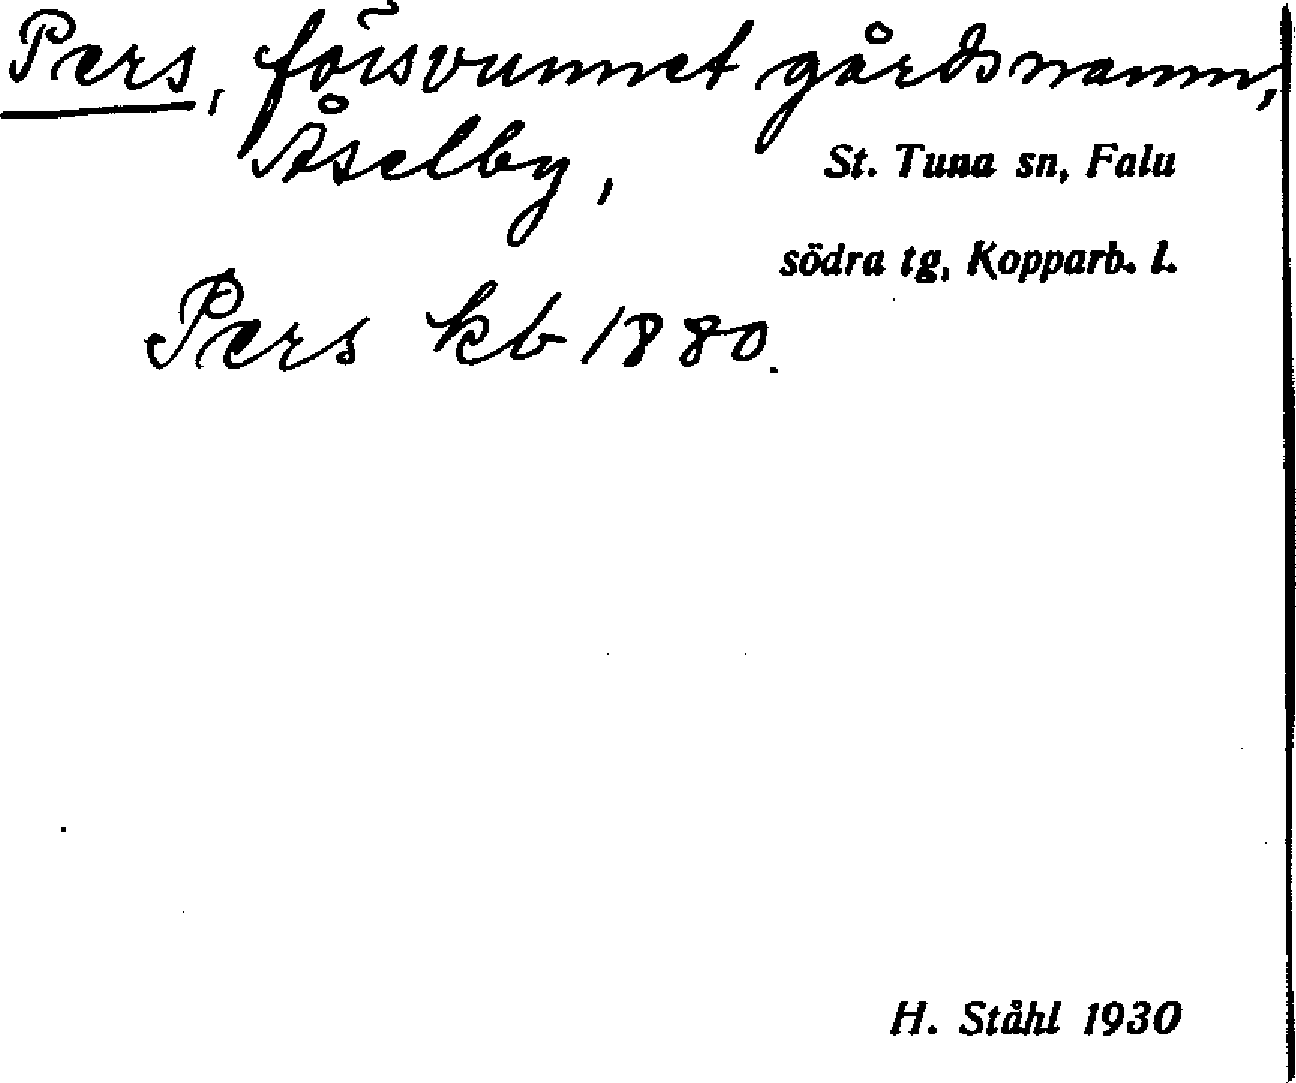 Pers, försvunnet gårdsnamn,
Åselby,
St. Tuna sn, Falu
södra tg, Kopparb. l.
Pers kb 1880.
H. Ståhl 1930